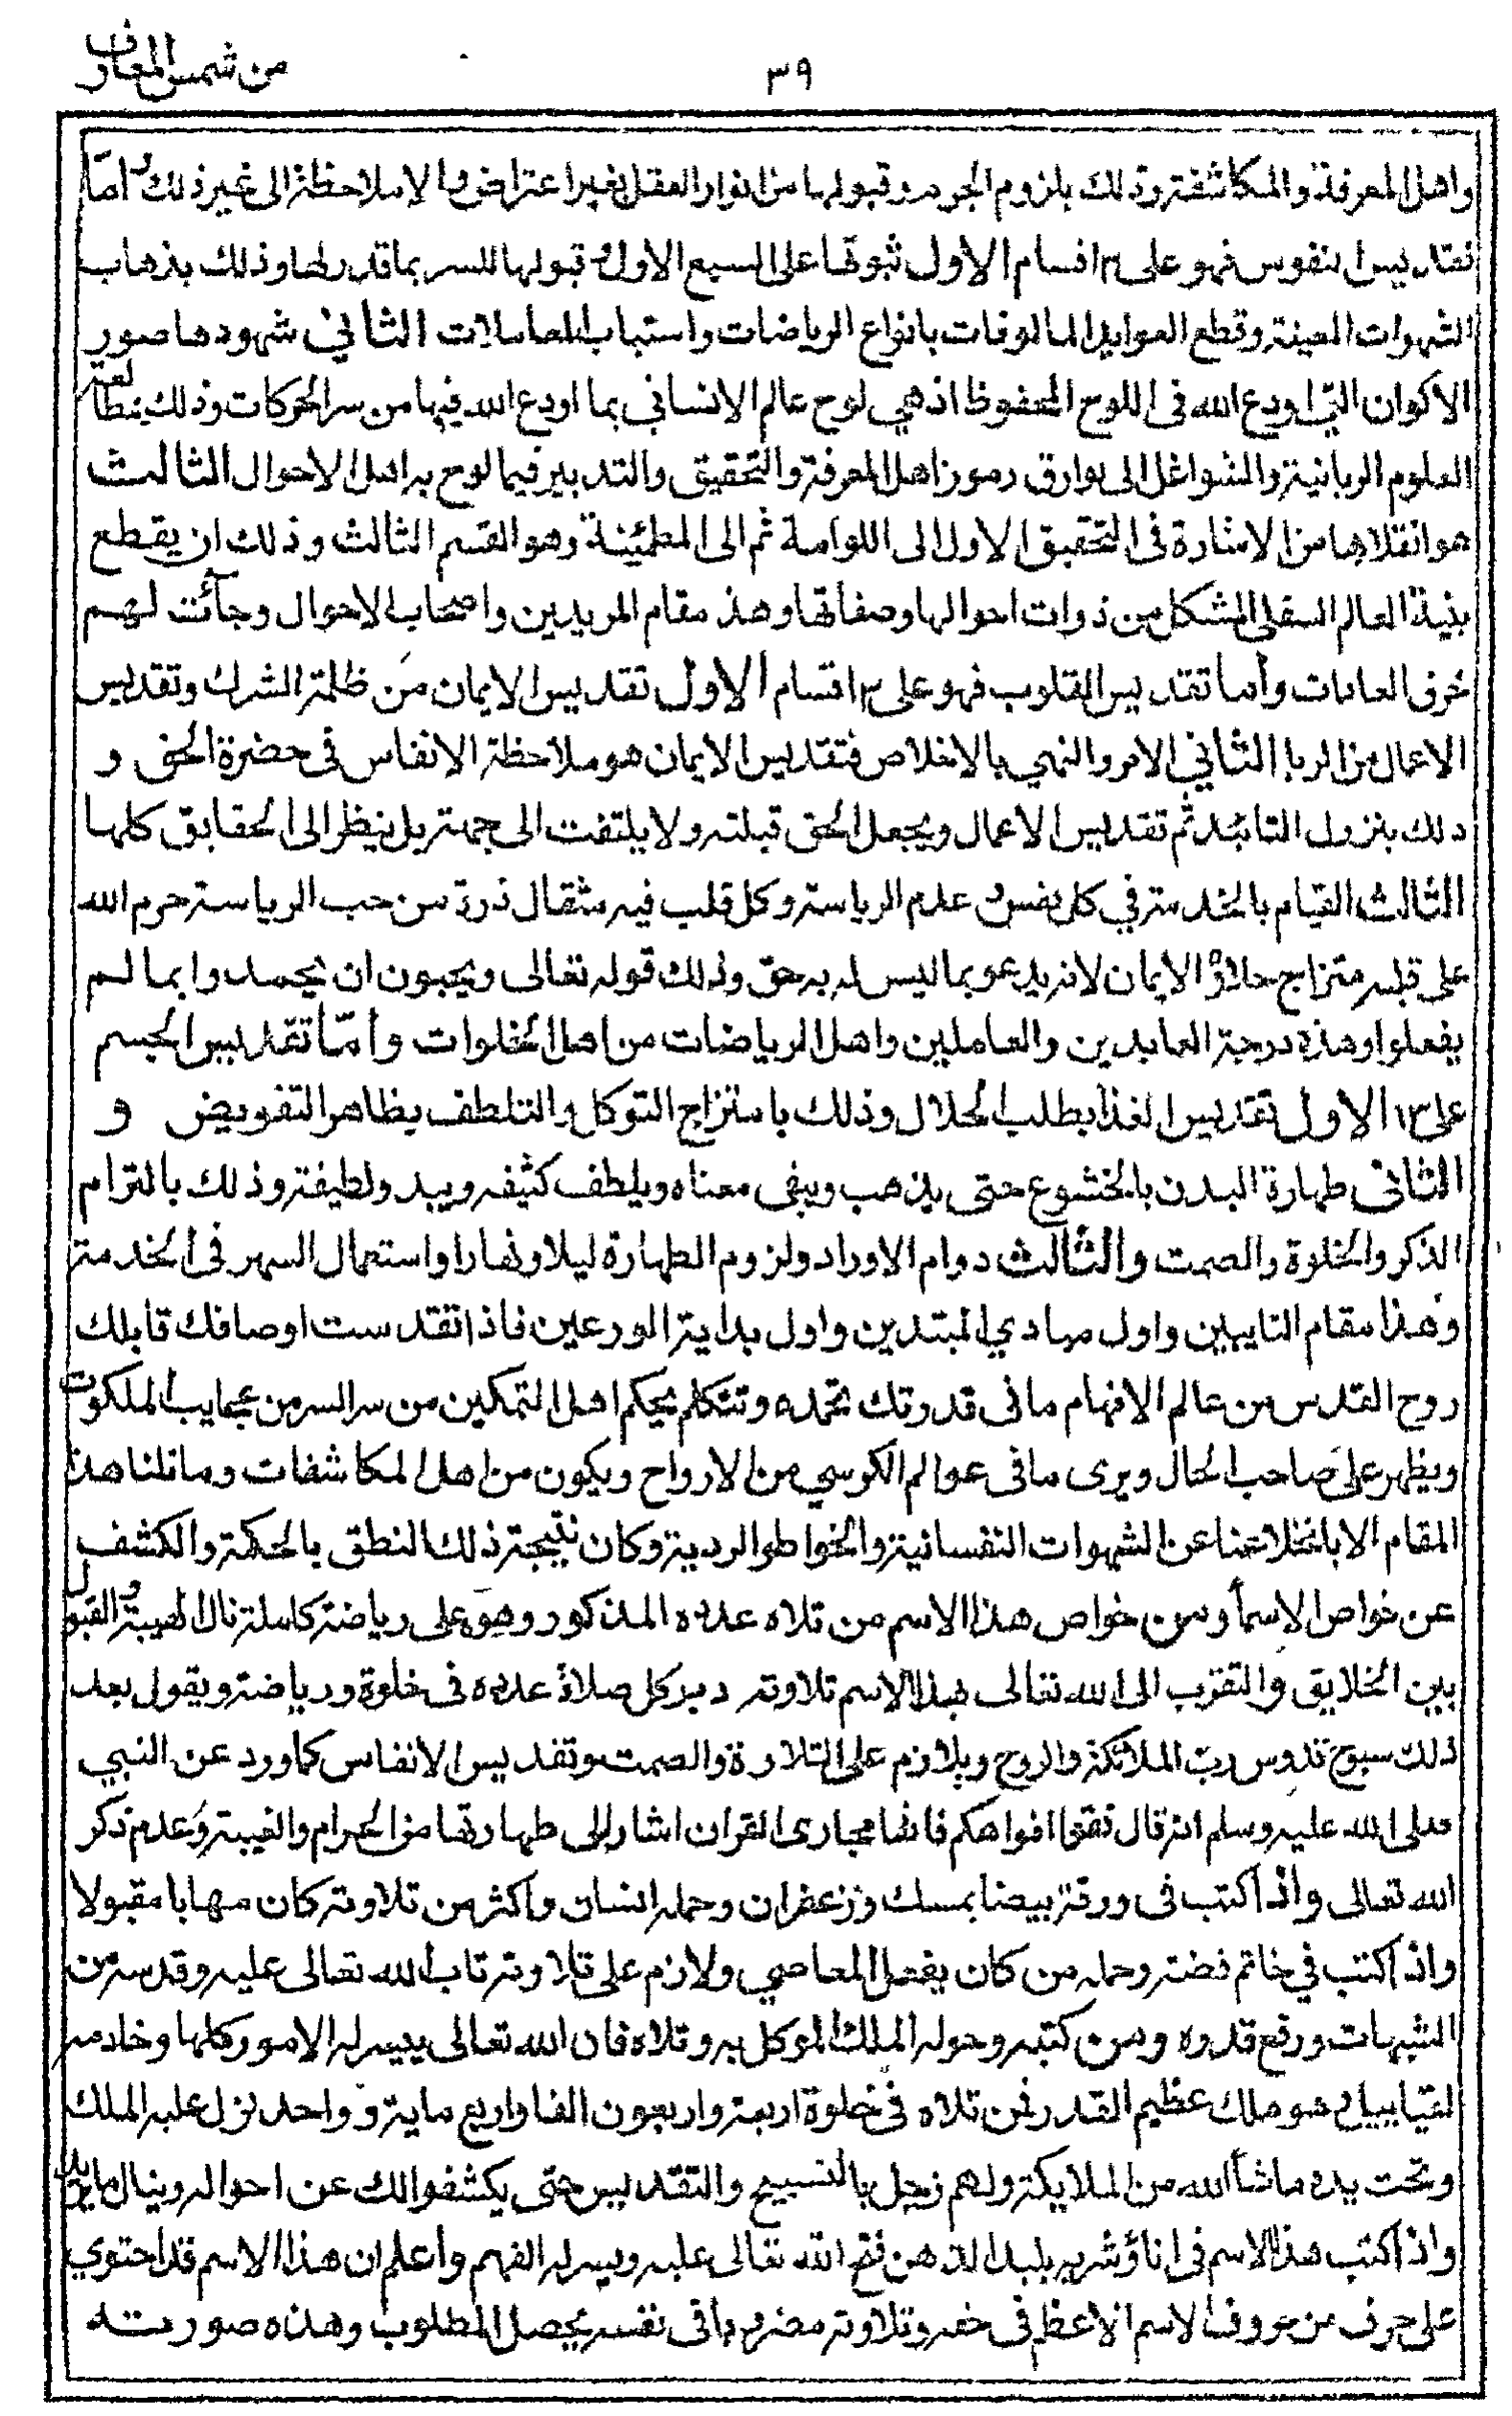 من شمس المعارف
٣٩
واهل المعرفة والمكاشفة وذلك بلزوم الحرمة وقبولها من انوار العقل بغير اعتراض ولا ملاحظة الى غير ذلك واما
تقديس النفوس فهو على ٣ اقسام الاول ثبوتها على السبع الاول قبولها للسر بما قدر لها وذلك بذهاب
الشهوات المعينة وقطع العوايد المالوفات بانواع الرياضات واستباب المعاملات الثاني شهودها صور
الاكوان التي اودع الله فى اللوح المحفوظ اذ هي لوح عالم الانسانى بما اودع الله فيها من سر الحركات وذلك بمطالعة
العلوم الربانية والشواغل الى بوارق رموز اهل المعرفة والتحقيق والتدبير فيما لوح به اهل الاحوال الثالث
هو انقلابها من الاشارة فى التحقيق الاول الى اللوامة ثم الى المطمئنة وهو القسم الثالث وذلك ان يقطع
بنية العالم السفلى المشكل من ذوات احوالها وصفاتها وهذ مقام المريدين واصحاب الاحوال وجائت لهم
خرق العادات وأما تقديس القلوب فهو على ٣ اقسام الاول تقديس الايمان من ظلمة الشرك وتقديس
الاعمال من الريا الثاني الامر والنهي بالاخلاص فتقديس الايمان هو ملاحظة الانفاس فى حضرة الحق و
ذلك بنزول التائيد ثم تقديس الاعمال ويجعل الحق قبلته ولا يلتفت الى جهة بل ينظر الى الحقايق كلها
الثالث القيام بالخدمة في كل نفس و عدم الرياسة وكل قلب فيه مثقال ذرة من حب الرياسة حرم الله
على قلبه متزاج حلاوة الايمان لانه يدعو بما ليس له به حق وذلك قوله تعالى ويحبون ان يحمدوا بما لم
يفعلوا وهذه درجة العابدين والعاملين واهل الرياضات من اهل الخلوات وأمّا تقديس الجسم
على ٣ الاول تقديس الغذا بطلب الحلال وذلك بامتزاج التوكل والتلطف بظاهر التفويض و
الثانى طهارة البدن بالخشوع حتى يذهب ويبقى معناه ويلطف كثيفه ويبدو لطيفه وذلك بالتزام
الذكر والخلوة والصمت والثالث دوام الاوراد ولزوم الطهارة ليلا ونهارا واستعمال السهر فى الخدمة
وهذا مقام التايبين واول مبادي المبتدين واول بداية الورعين فاذا تقدست اوصافك قابلك
روح القدس من عالم الافهام مافى قدرتك تحمده وتتكلم بحكم اهل التمكين من سر السر من عجايب الملكوت
ويظهر على صاحب الحال ويرى مافى عوالم الكرسي من الارواح ويكون من اهل المكاشفات وما نلنا هذ
المقام الا بانخلاعنا عن الشهوات النفسانية والخواطر الردية وكان نتيجة ذلك النطق بالحكمة والكشف
عن خواص الاسمأ ومن خواص هذا الاسم من تلاه عدده المذكور وهو على رياضة كاملة نال الهيبة والقبول
بين الخلايق والتقرب الى الله تعالى بهذا الاسم تلاوته دبر كل صلاة عدده فى خلوة ورياضة ويقول بعد
ذلك سبوح قدوس ربّ الملائكة والروح ويلازم على التلاوة والصمت وتقديس الانفاس كما ورد عن النبي
صلى الله عليه وسلم انه قال نقوا افواهكم فانها مجارى القران اشار الى طهارتها من الحرام والغيبة وعدم ذكر
الله تعالى واذا كتب فى ورقة بيضا بمسك وزعفران وحمله انسان واكثر من تلاوته كان مهابا مقبولا
واذا كتب في خاتم فضة وحمله من كان يفعل المعاصي ولازم على تلاوته تاب الله تعالى عليه وقدسه من
الشبهات ورفع قدره ومن كتبه وحوله الملك الموكل به وتلاه فان الله تعالى ييسر له الامور كلها وخادمه
لقيابيل و هو ملك عظيم القدر فمن تلاه فى خلوة اربعة واربعون الفا واربع ماية و واحد نزل عليه الملك
وتحت يده ماشأ الله من الملايكة ولهم زجل بالتسبيح والتقديس حتى يكشفوا لك عن احواله وينال ما يريد
واذا كتب هذا الاسم فى انا وشربه بليد الذهن فتح الله تعالى عليه ويسر له الفهم وأعلم ان هذا الاسم قد احتوي
على حرف من حروف الاسم الاعظم فى وتلاوته بافى نفسه يحصل المطلوب وهذه صورته